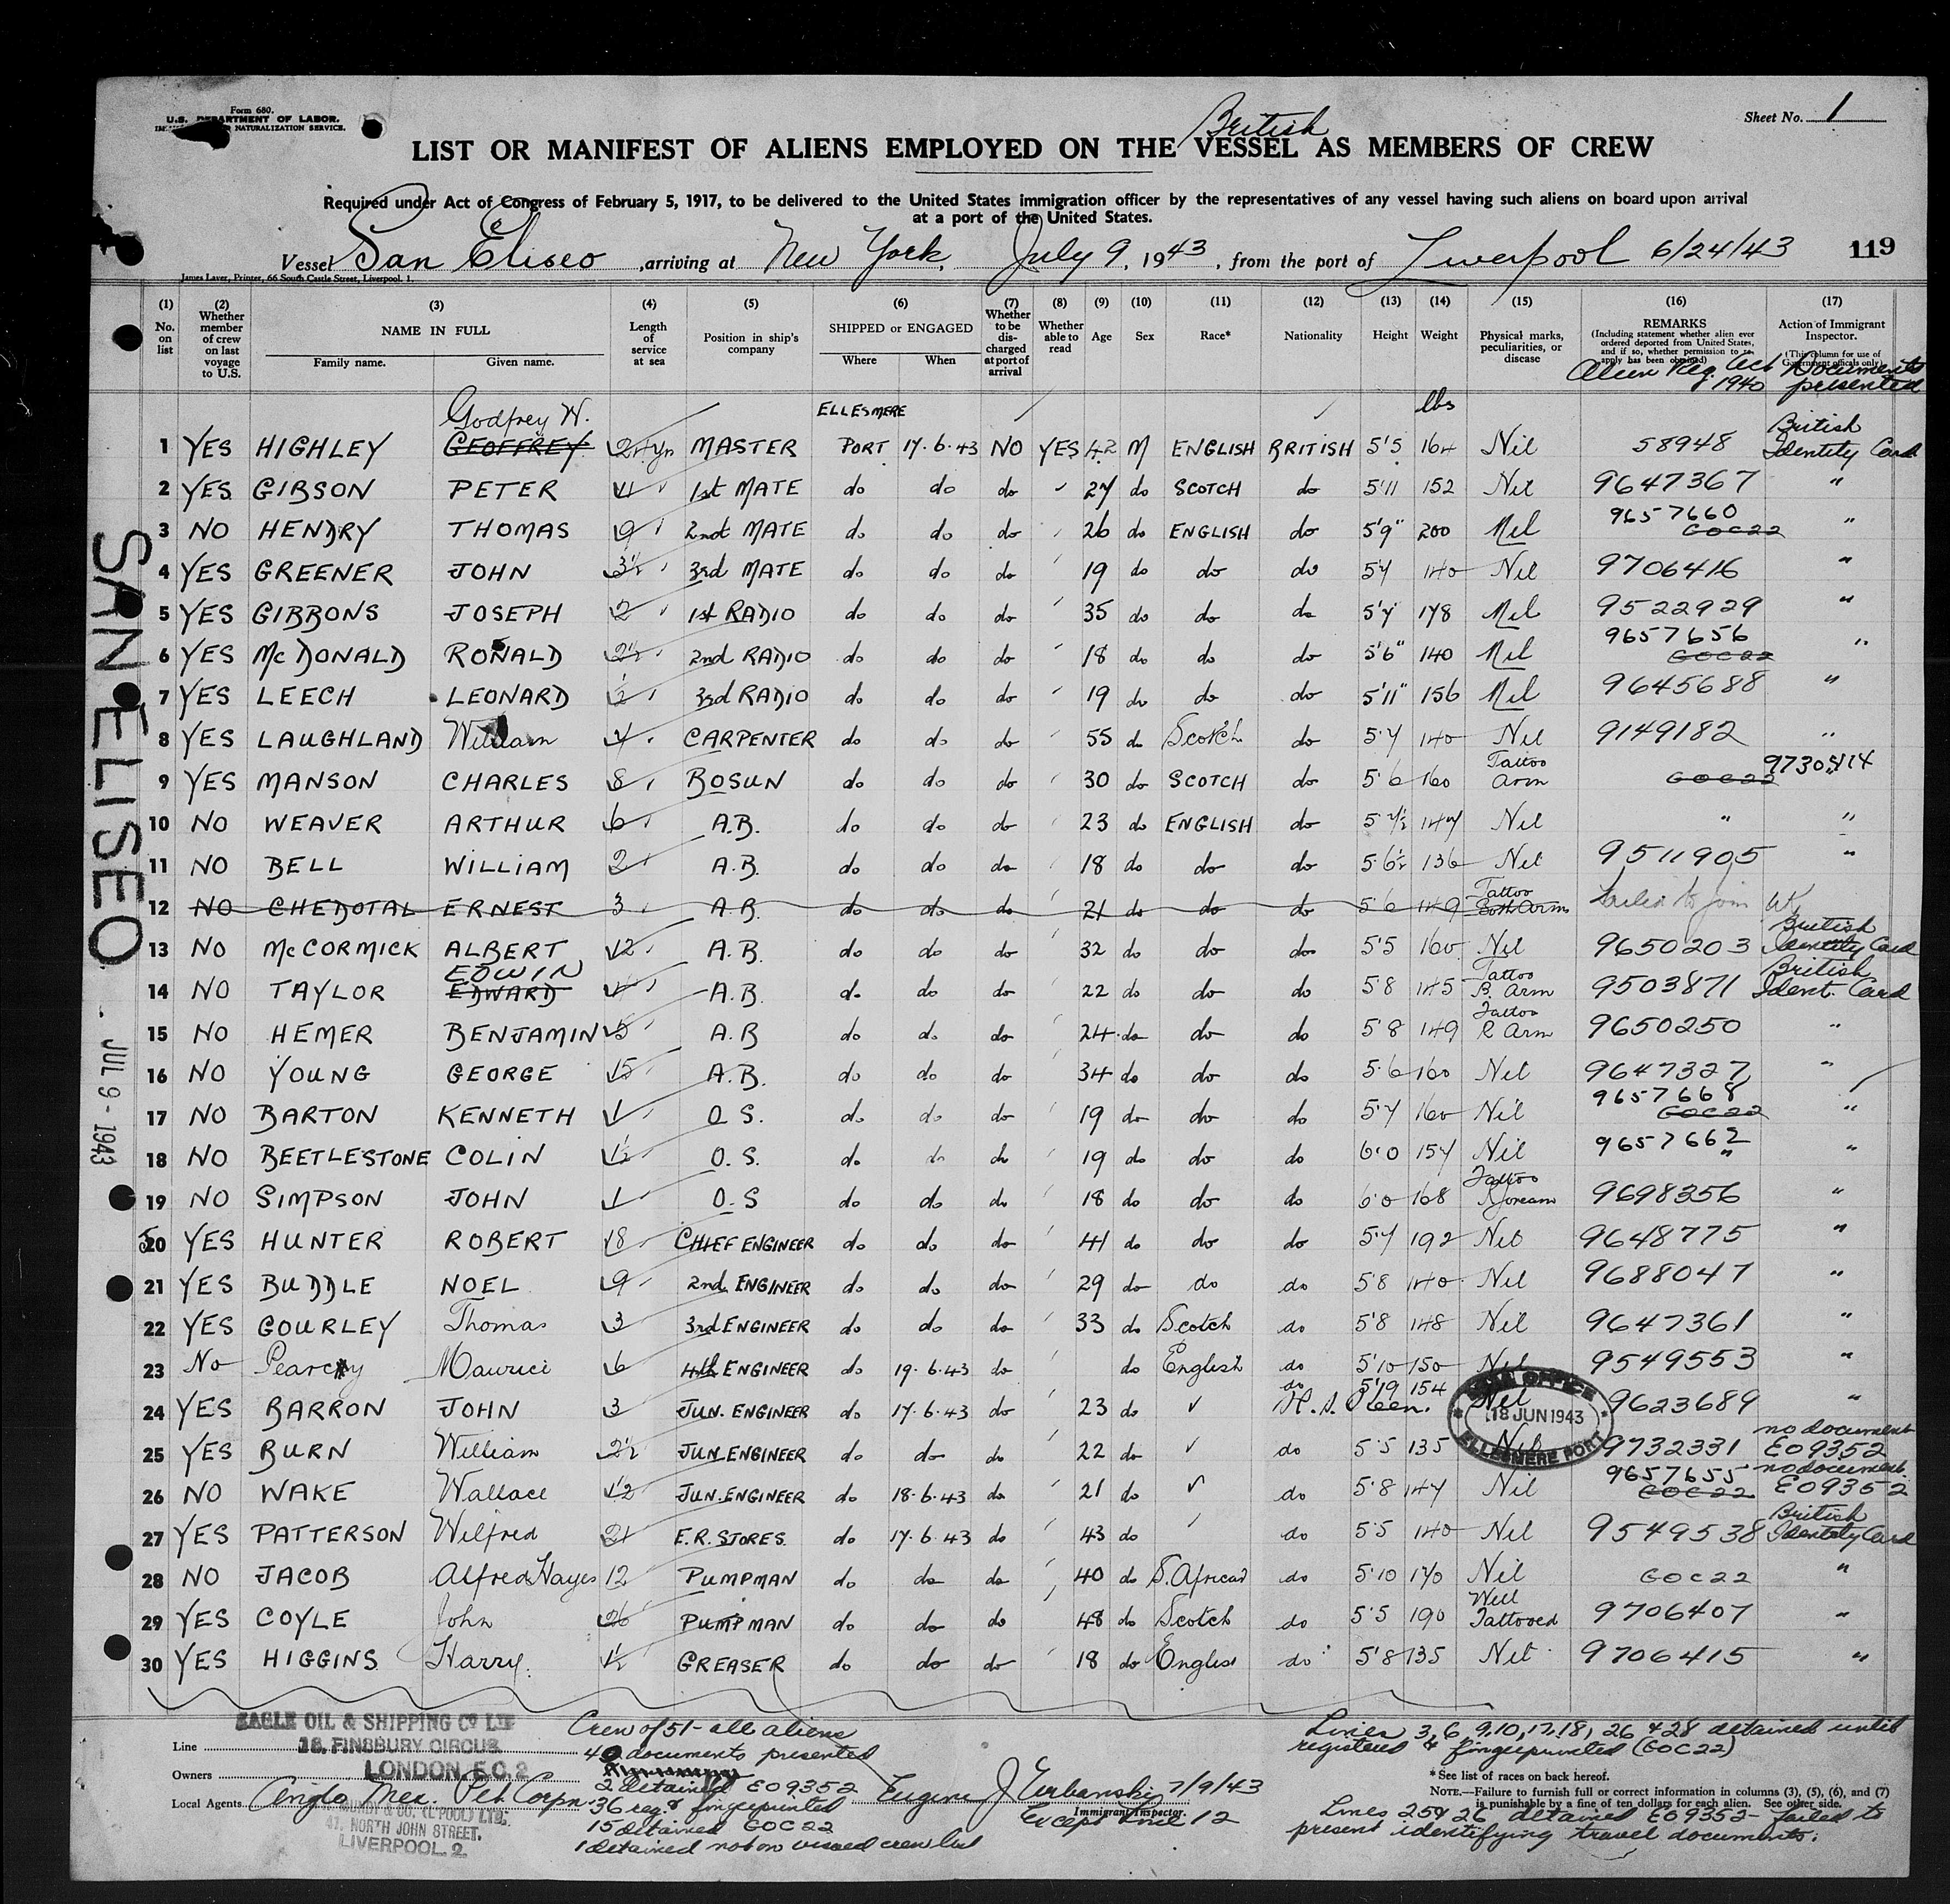 Form 680.
U.S. DEPARTMENT OF LABOR.
NATURALIZATION SERVICE.
Sheet No. 1
British
LIST OR MANIFEST OF ALIENS EMPLOYED ON THE VESSEL AS MEMBERS OF CREW
Required under Act of Congress of February 5, 1917, to be delivered to the United States immigration officer by the representatives of any vessel having such aliens on board upon arrival
at a port of the United States.
Vessel San Eliseo, arriving at New York, July 9, 1943, from the port of Liverpool 6/24/43 119
James Laver, Printer, 66 South Castle Street, Liverpool. 1.
(1) No. on list (2) Whether member of crew on last voyage to U.S. (3) NAME IN FULL Family name. Given name. (4) Length of service at sea (5) Position in ship's company (6) SHIPPED or ENGAGED Where When (7) Whether to be discharged at port of arrival (8) Whether able to read (9) Age (10) Sex (11) Race* (12) Nationality (13) Height (14) Weight (15) Physical marks, peculiarities, or disease (16) REMARKS (Including statement whether alien ever ordered deported from United States, and if so, whether permission to re-apply has been obtained) (17) Action of Immigrant Inspector. (This column for use of Government officials only)
Alien Reg. Act 1940 Documents presented
Godfrey W. ELLESMERE lbs British
1 YES HIGHLEY GEOFFREY 24 yrs MASTER PORT 17.6.43 NO YES 42 M ENGLISH BRITISH 5'5 164 Nil 58948 Identity Card
2 YES GIBSON PETER 11 1st MATE do do do 27 do SCOTCH do 5'11 152 Nil 9647367 "
3 NO HENDRY THOMAS 9 2nd MATE do do do 26 do ENGLISH do 5'9" 200 Nil 9657660 GOC22 "
4 YES GREENER JOHN 3½ 3rd MATE do do do 19 do do do 5'7 140 Nil 9706416 "
5 YES GIBBONS JOSEPH 2 1st RADIO do do do 35 do do do 5'7" 178 Nil 9522929 "
6 YES McDONALD RONALD 2½ 2nd RADIO do do do 18 do do do 5'6" 140 Nil 9657656 GOC22 "
7 YES LEECH LEONARD ½ 3rd RADIO do do do 19 do do do 5'11" 156 Nil 9645688 "
8 YES LAUGHLAND William CARPENTER do do do 55 do Scotch do 5.7 140 Nil 9149182 "
9 YES MANSON CHARLES 8 BOSUN do do do 30 do SCOTCH do 5.6 160 Tattoo Arm GOC22 "
10 NO WEAVER ARTHUR 6 A.B. do do do 23 do ENGLISH do 5 7½ 147 Nil " "
11 NO BELL WILLIAM 2 A.B. do do do 18 do do do 5.6½ 136 Nil 9511905 "
12 NO CHEDOTAL ERNEST 3 A.B. do do do 21 do do do 5'6 149 Tattoo Both Arms Failed to join UK
13 NO McCORMICK ALBERT 12 A.B. do do do 32 do do do 5'5 160 Nil 9650203 British Identity Card
14 NO TAYLOR EDWIN EDWARD A.B. do do do 22 do do do 5'8 145 Tattoo Arm 9503871 British Ident. Card
15 NO HEMER BENJAMIN 5 A.B do do do 24 do do do 5'8 149 Tattoo R Arm 9650250 "
16 NO YOUNG GEORGE 15 A.B. do do do 34 do do do 5.6 160 Nil 9647327 "
17 NO BARTON KENNETH 1 O S. do do do 19 do do do 5.7 160 Nil 9657668 GOC22 "
18 NO BEETLESTONE COLIN 1½ O.S. do do do 19 do do do 6.0 157 Nil 9657662 " "
19 NO SIMPSON JOHN 1 O.S do do do 18 do do do 6.0 168 Tattoo 9698356 "
20 YES HUNTER ROBERT 18 CHIEF ENGINEER do do do 41 do do do 5.7 192 Nil 9648775 "
21 YES BUDDLE NOEL 9 2nd ENGINEER do do do 29 do do do 5'8 140 Nil 9688047 "
22 YES GOURLEY Thomas 3 3rd ENGINEER do do do 33 do Scotch do 5'8 148 Nil 9647361 "
23 No Pearcy Maurice 6 4th ENGINEER do 19.6.43 do do English do 5'10 150 Nil 9549553 "
24 YES BARRON JOHN 3 JUN. ENGINEER do 17.6.43 do 23 do do 5'9 154 Nil 9623689 "
25 YES BURN William 2½ JUN. ENGINEER do do do 22 do do 5'5 135 Nil 9732331 no document EO9352
26 NO WAKE Wallace 1½ JUN. ENGINEER do 18.6.43 do 21 do do 5'8 147 Nil 9657655 GOC22 no document EO9352
27 YES PATTERSON Wilfred 21 E.R. STORES do 17.6.43 do 43 do do 5'5 140 Nil 9549538 British Identity Card
28 NO JACOB Alfred Hayes 12 PUMPMAN do do do 40 do S. African do 5'10 170 Nil GOC22 "
29 YES COYLE John 26 PUMPMAN do do do 48 do Scotch do 5'5 190 Well Tattooed 9706407 "
30 YES HIGGINS Harry. 1½ GREASER do do do 18 do English do 5'8 135 Nil 9706415 "
SAN ELISEO
JUL 9 - 1943
OFFICE
18 JUN 1943
ELLESMERE PORT
Line
EAGLE OIL & SHIPPING Co LTD
16, FINSBURY CIRCUS
Owners
LONDON E.C.2
Local Agents Anglo Mex. Pet. Corpn.
47, NORTH JOHN STREET,
LIVERPOOL. 2.
Crew of 51 - all aliens
40 documents presented
2 detained EO9352
36 reg. & fingerprinted
15 detained GOC22
1 detained not on visaed crew list
Eugene J Urbanski 7/9/43
Immigrant Inspector.
Except Line 12
Lines 3, 6, 9, 10, 17, 18, 26 & 28 detained until
registered & fingerprinted (GOC22)
* See list of races on back hereof.
NOTE.—Failure to furnish full or correct information in columns (3), (5), (6), and (7)
is punishable by a fine of ten dollars for each alien. See other side.
Lines 25 & 26 detained EO9352 - failed to
present identifying travel documents.